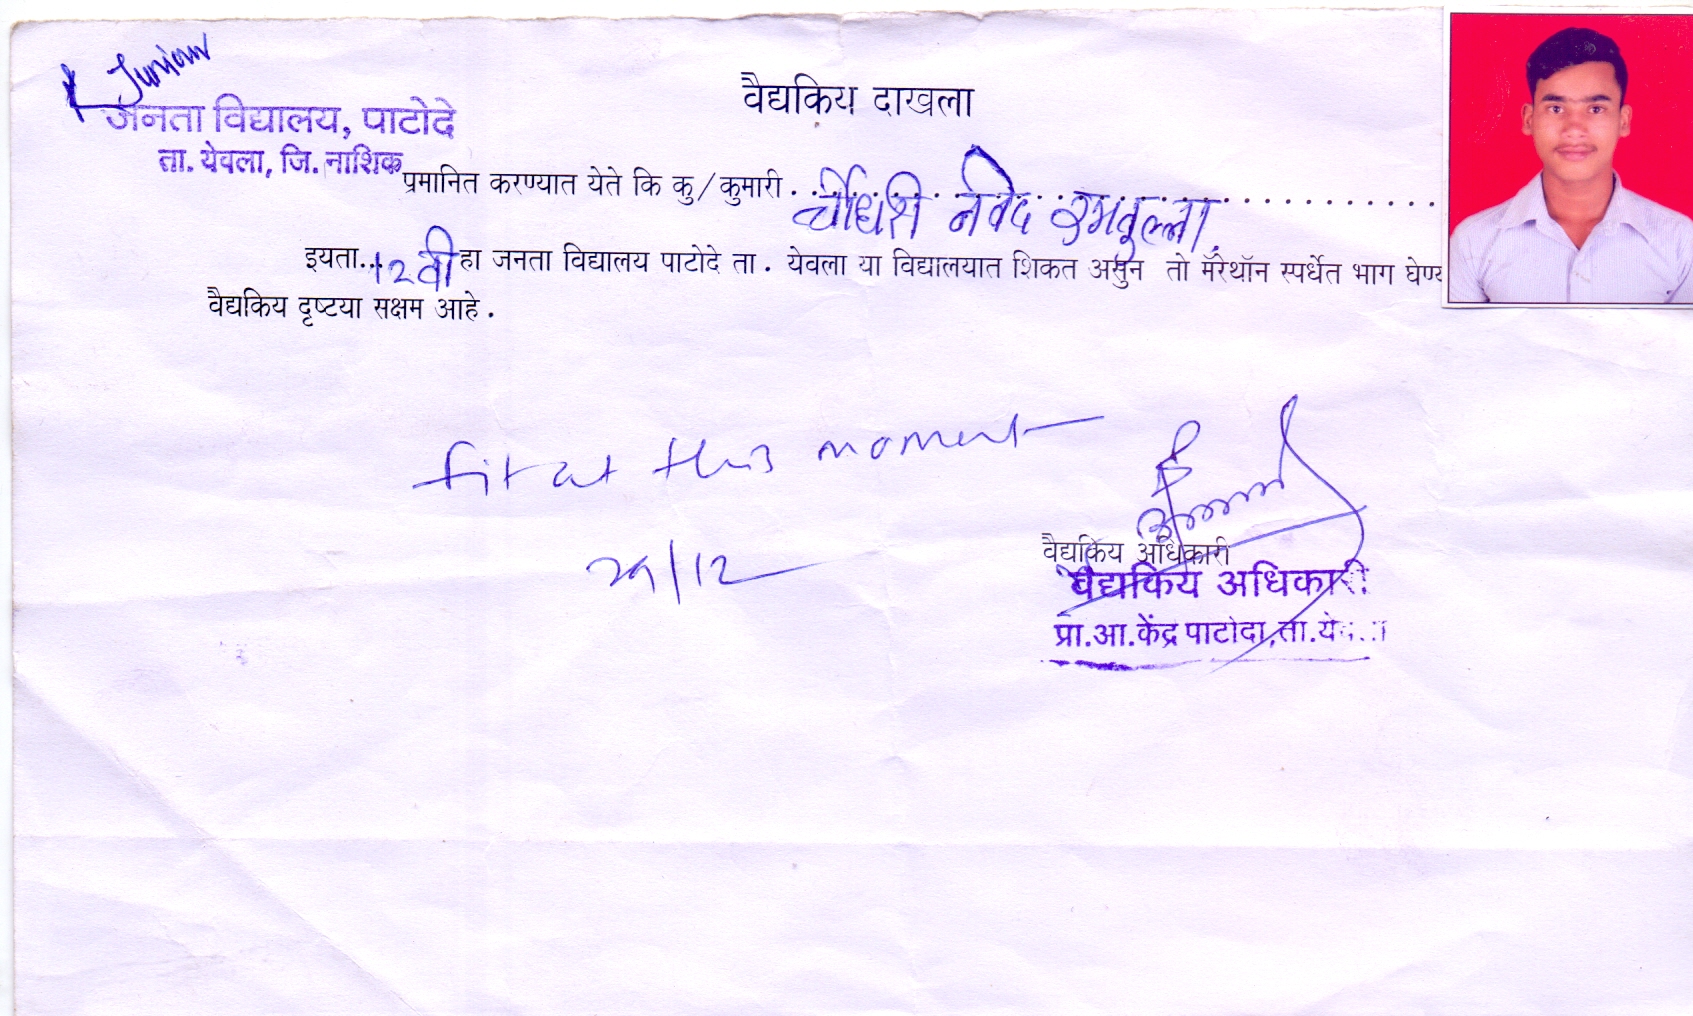 & Junior
जनता विद्यालय, पाटोदे
ता. येवला, जि. नाशिक
वैद्यकिय दाखला
प्रमानित करण्यात येते कि कु/कुमारी . चौधरी नवेद
इयता...12वी हा जनता विद्यालय पाटोदे ता. येवला या विद्यालयात शिकत असुन तो मॅरेथॉन स्पर्धेत भाग घेण्य
वैद्यकिय दृष्टया सक्षम आहे.
fit at this moment
29/12
वैद्यकिय अधिकारी
वैद्यकिय अधिकारी
प्रा.आ.केंद्र पाटोदा, ता.